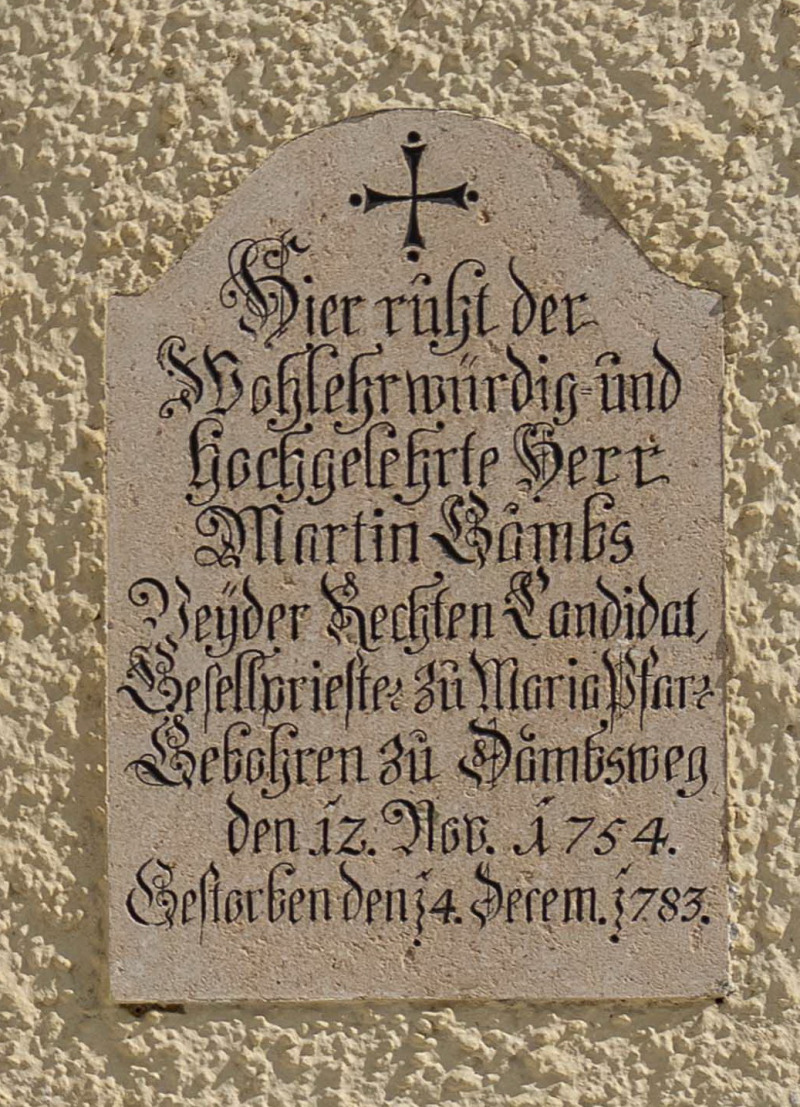 Hier ruht der
Wohlehrwürdig-und
hochgelehrte Herr
Martin Gåmbs
Beÿder Rechten Candidat,
Gesellpriester zu Maria Pfar
Gebohren zu Dåmbsweg
den 12. Nov. 1754.
Gestorben den 14. Decem. 1783.